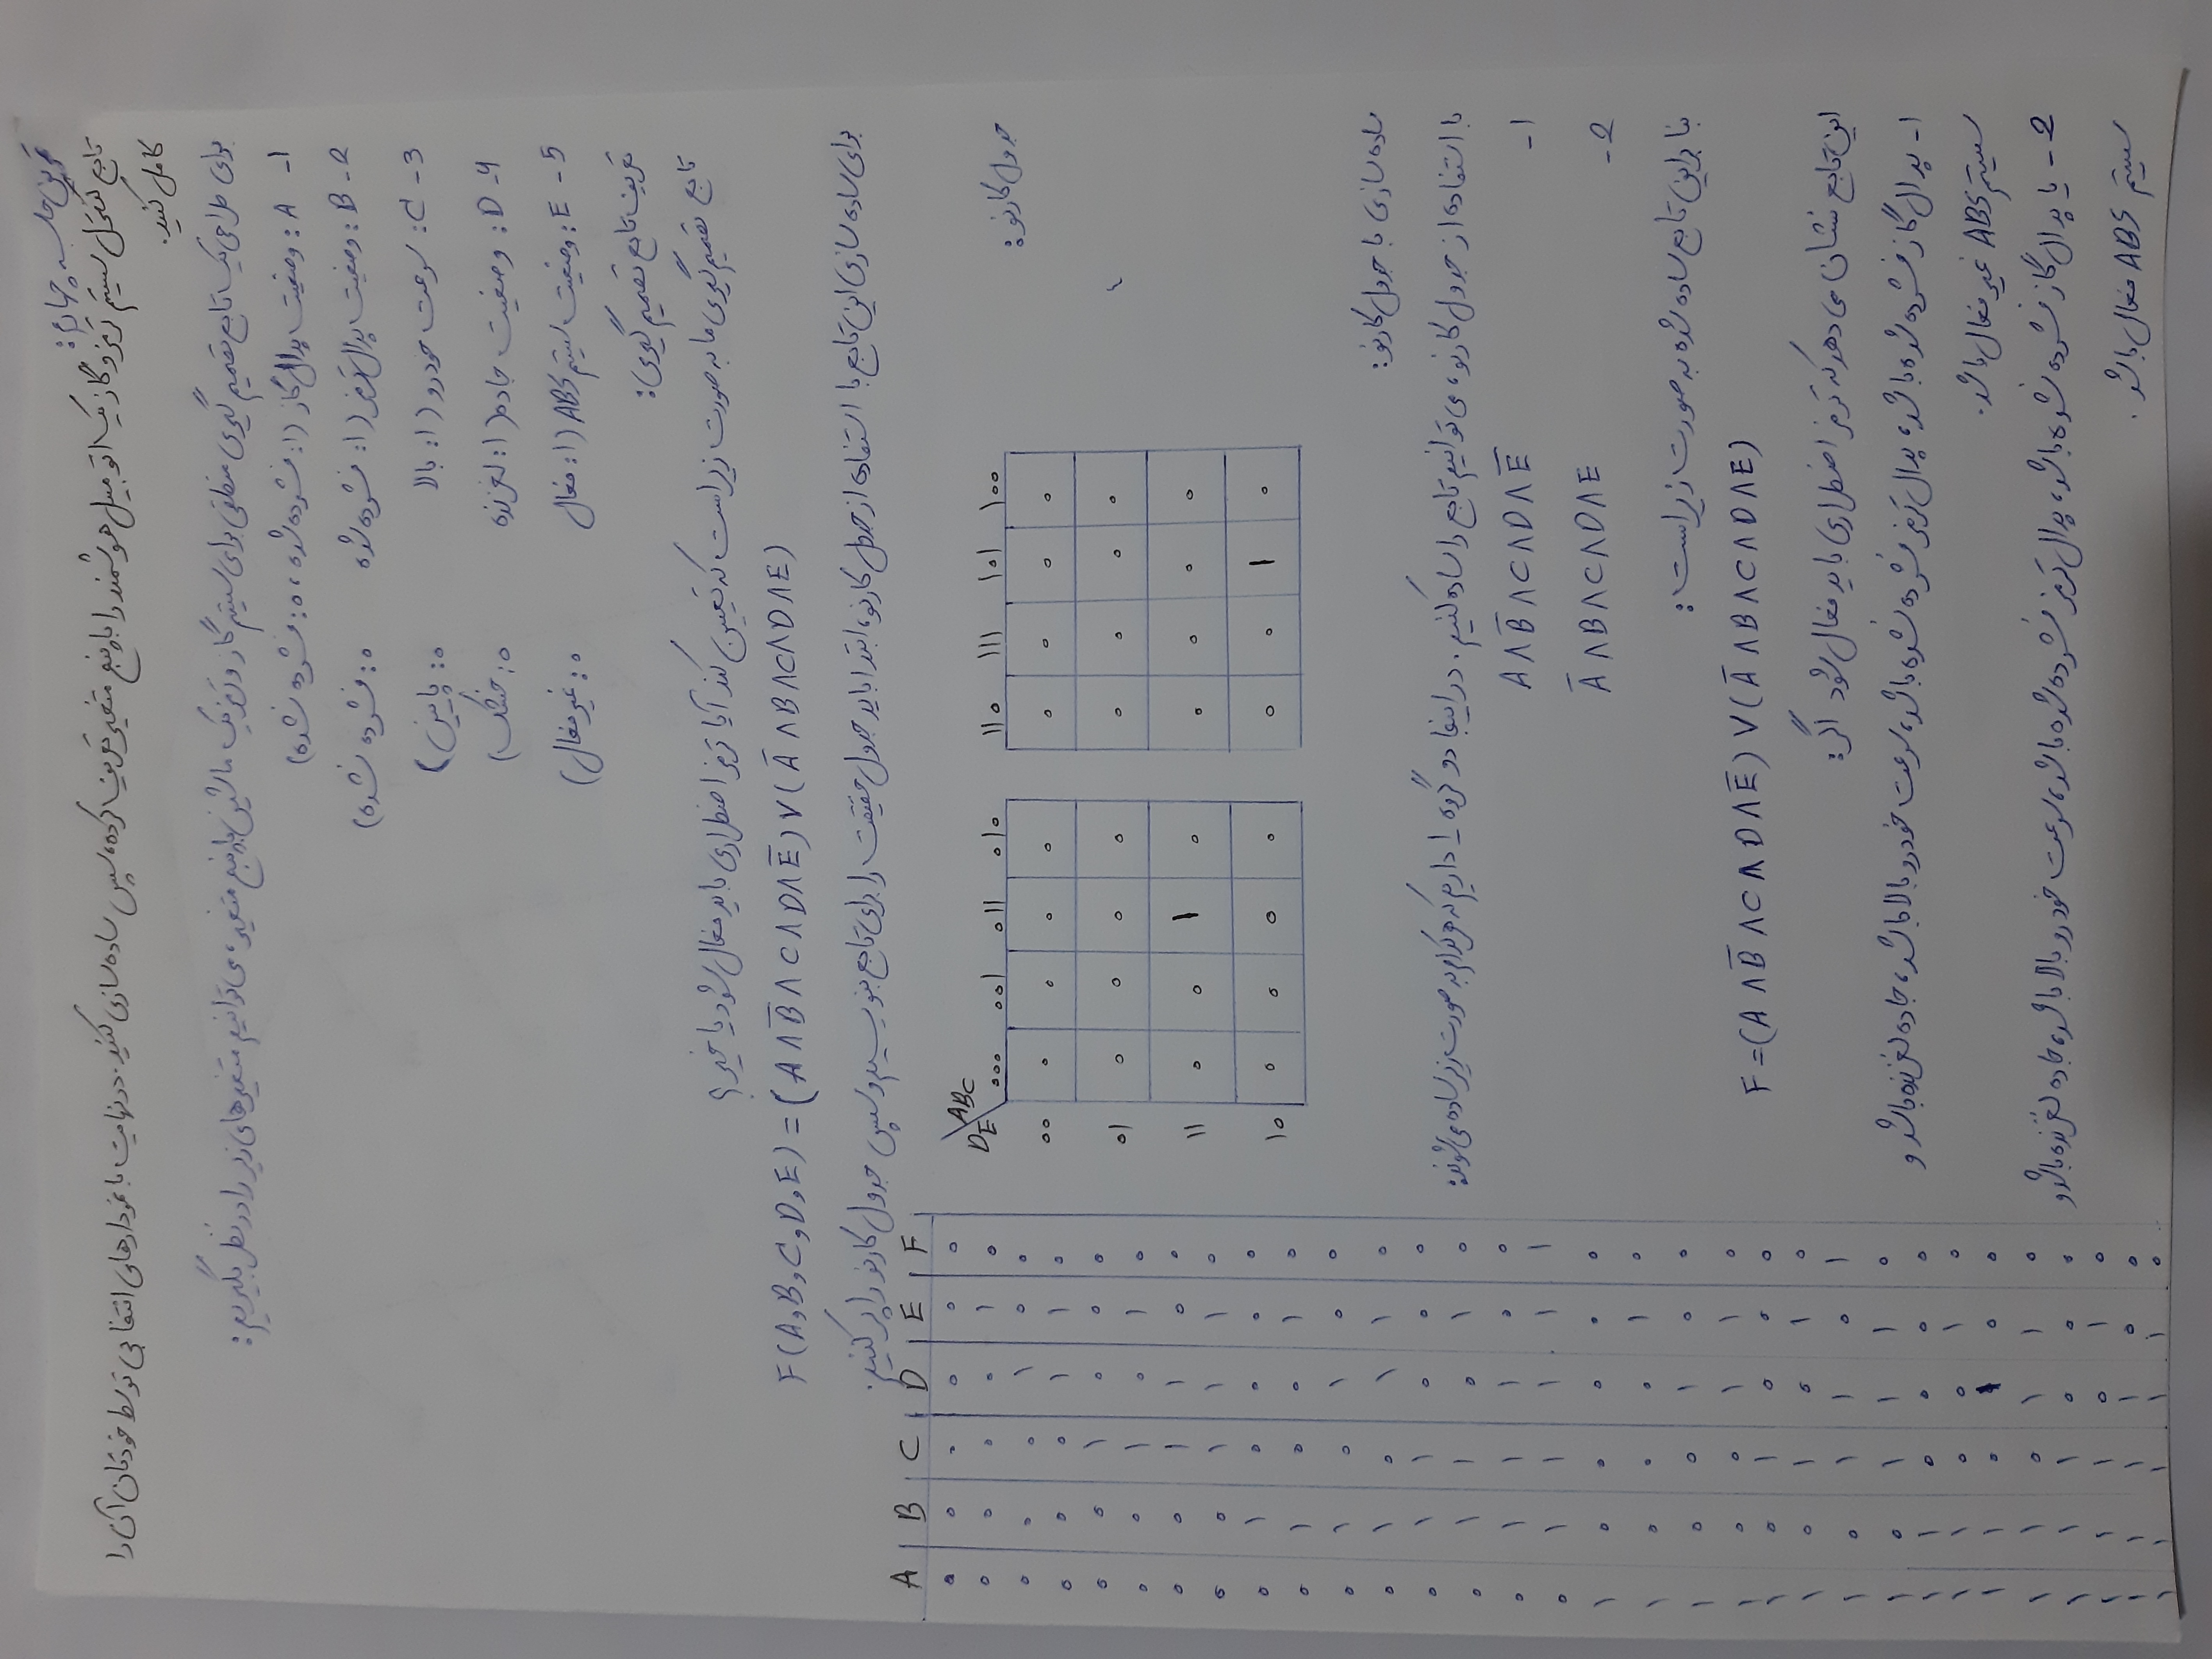 تمرین جلسه چهارم:
تابع کنترل سیستم ترمز و گاز یک اتومبیل هوشمند را با پنج متغیر تعریف کرده، سپس ساده سازی کنید. در نهایت با نمودارهای انتخابی توسط خودتان آن را
کامل کنید.
برای طراحی یک تابع تصمیم گیری منطقی برای سیستم گاز و ترمز یک ماشین با پنج متغیر، می توانیم متغیرهای زیر را در نظر بگیریم:
1- A: وضعیت پدال گاز (1: فشرده شده، 0: فشرده نشده)
2- B: وضعیت پدال ترمز (1: فشرده شده 0: فشرده نشده)
3- C: سرعت خودرو (1: بالا 0: پایین)
4- D: وضعیت جاده (1: لغزنده 0: خشک)
5- E: وضعیت سیستم ABS (1: فعال 0: غیر فعال)
تعریف تابع تصمیم گیری:
تابع تصمیم گیری ما به صورت زیر است که تعیین کند آیا ترمز اضطراری باید فعال شود یا خیر؟
F(A,B,C,D,E) = (A∧B̅∧C∧D∧E̅)∨(A̅∧B∧C∧D∧E)
برای ساده سازی این تابع با استفاده از جدول کارنو، ابتدا باید جدول حقیقت را برای تابع بنویسیم و سپس جدول کارنو را پر کنیم.
A B C D E F
0 0 0 0 0 0
0 0 0 0 1 0
0 0 0 1 0 0
0 0 0 1 1 0
0 0 1 0 0 0
0 0 1 0 1 0
0 0 1 1 0 0
0 0 1 1 1 0
0 1 0 0 0 0
0 1 0 0 1 0
0 1 0 1 0 0
0 1 0 1 1 0
0 1 1 0 0 0
0 1 1 0 1 0
0 1 1 1 0 0
0 1 1 1 1 1
1 0 0 0 0 0
1 0 0 0 1 0
1 0 0 1 0 0
1 0 0 1 1 0
1 0 1 0 0 0
1 0 1 0 1 0
1 0 1 1 0 1
1 0 1 1 1 0
1 1 0 0 0 0
1 1 0 0 1 0
1 1 0 1 0 0
1 1 0 1 1 0
1 1 1 0 0 0
1 1 1 0 1 0
1 1 1 1 0 0
1 1 1 1 1 0
جدول کارنو:
ABC
DE
000 001 011 010 110 111 101 100
00 0 0 0 0 0 0 0 0
01 0 0 0 0 0 0 0 0
11 0 0 1 0 0 0 0 0
10 0 0 0 0 0 0 1 0
ساده سازی با جدول کارنو:
با استفاده از جدول کارنو، می توانیم تابع را ساده کنیم. در اینجا دو گروه 1 داریم که هر کدام به صورت زیر ساده می شوند:
1- A∧B̅∧C∧D∧E̅
2- A̅∧B∧C∧D∧E
بنا براین تابع ساده شده به صورت زیر است:
F=(A∧B̅∧C∧D∧E̅)∨(A̅∧B∧C∧D∧E)
این تابع نشان می دهد که ترمز اضطراری باید فعال شود اگر:
1- پدال گاز فشرده شده باشد، پدال ترمز فشرده نشده باشد، سرعت خودرو بالا باشد، جاده لغزنده باشد و
سیستم ABS غیر فعال باشد.
2- یا پدال گاز فشرده نشده باشد، پدال ترمز فشرده شده باشد، سرعت خودرو بالا باشد، جاده لغزنده باشد و
سیستم ABS فعال باشد.